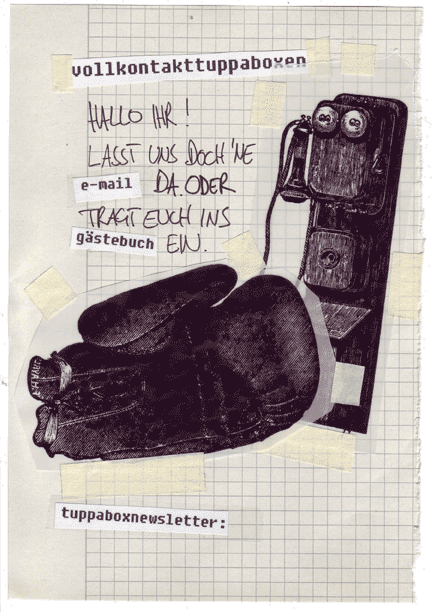 vollkontakttuppaboxen
HALLO IHR!
LASST UNS DOCH 'NE
e-mail DA. ODER
TRAGT EUCH INS
gästebuch EIN.
tuppaboxnewsletter: